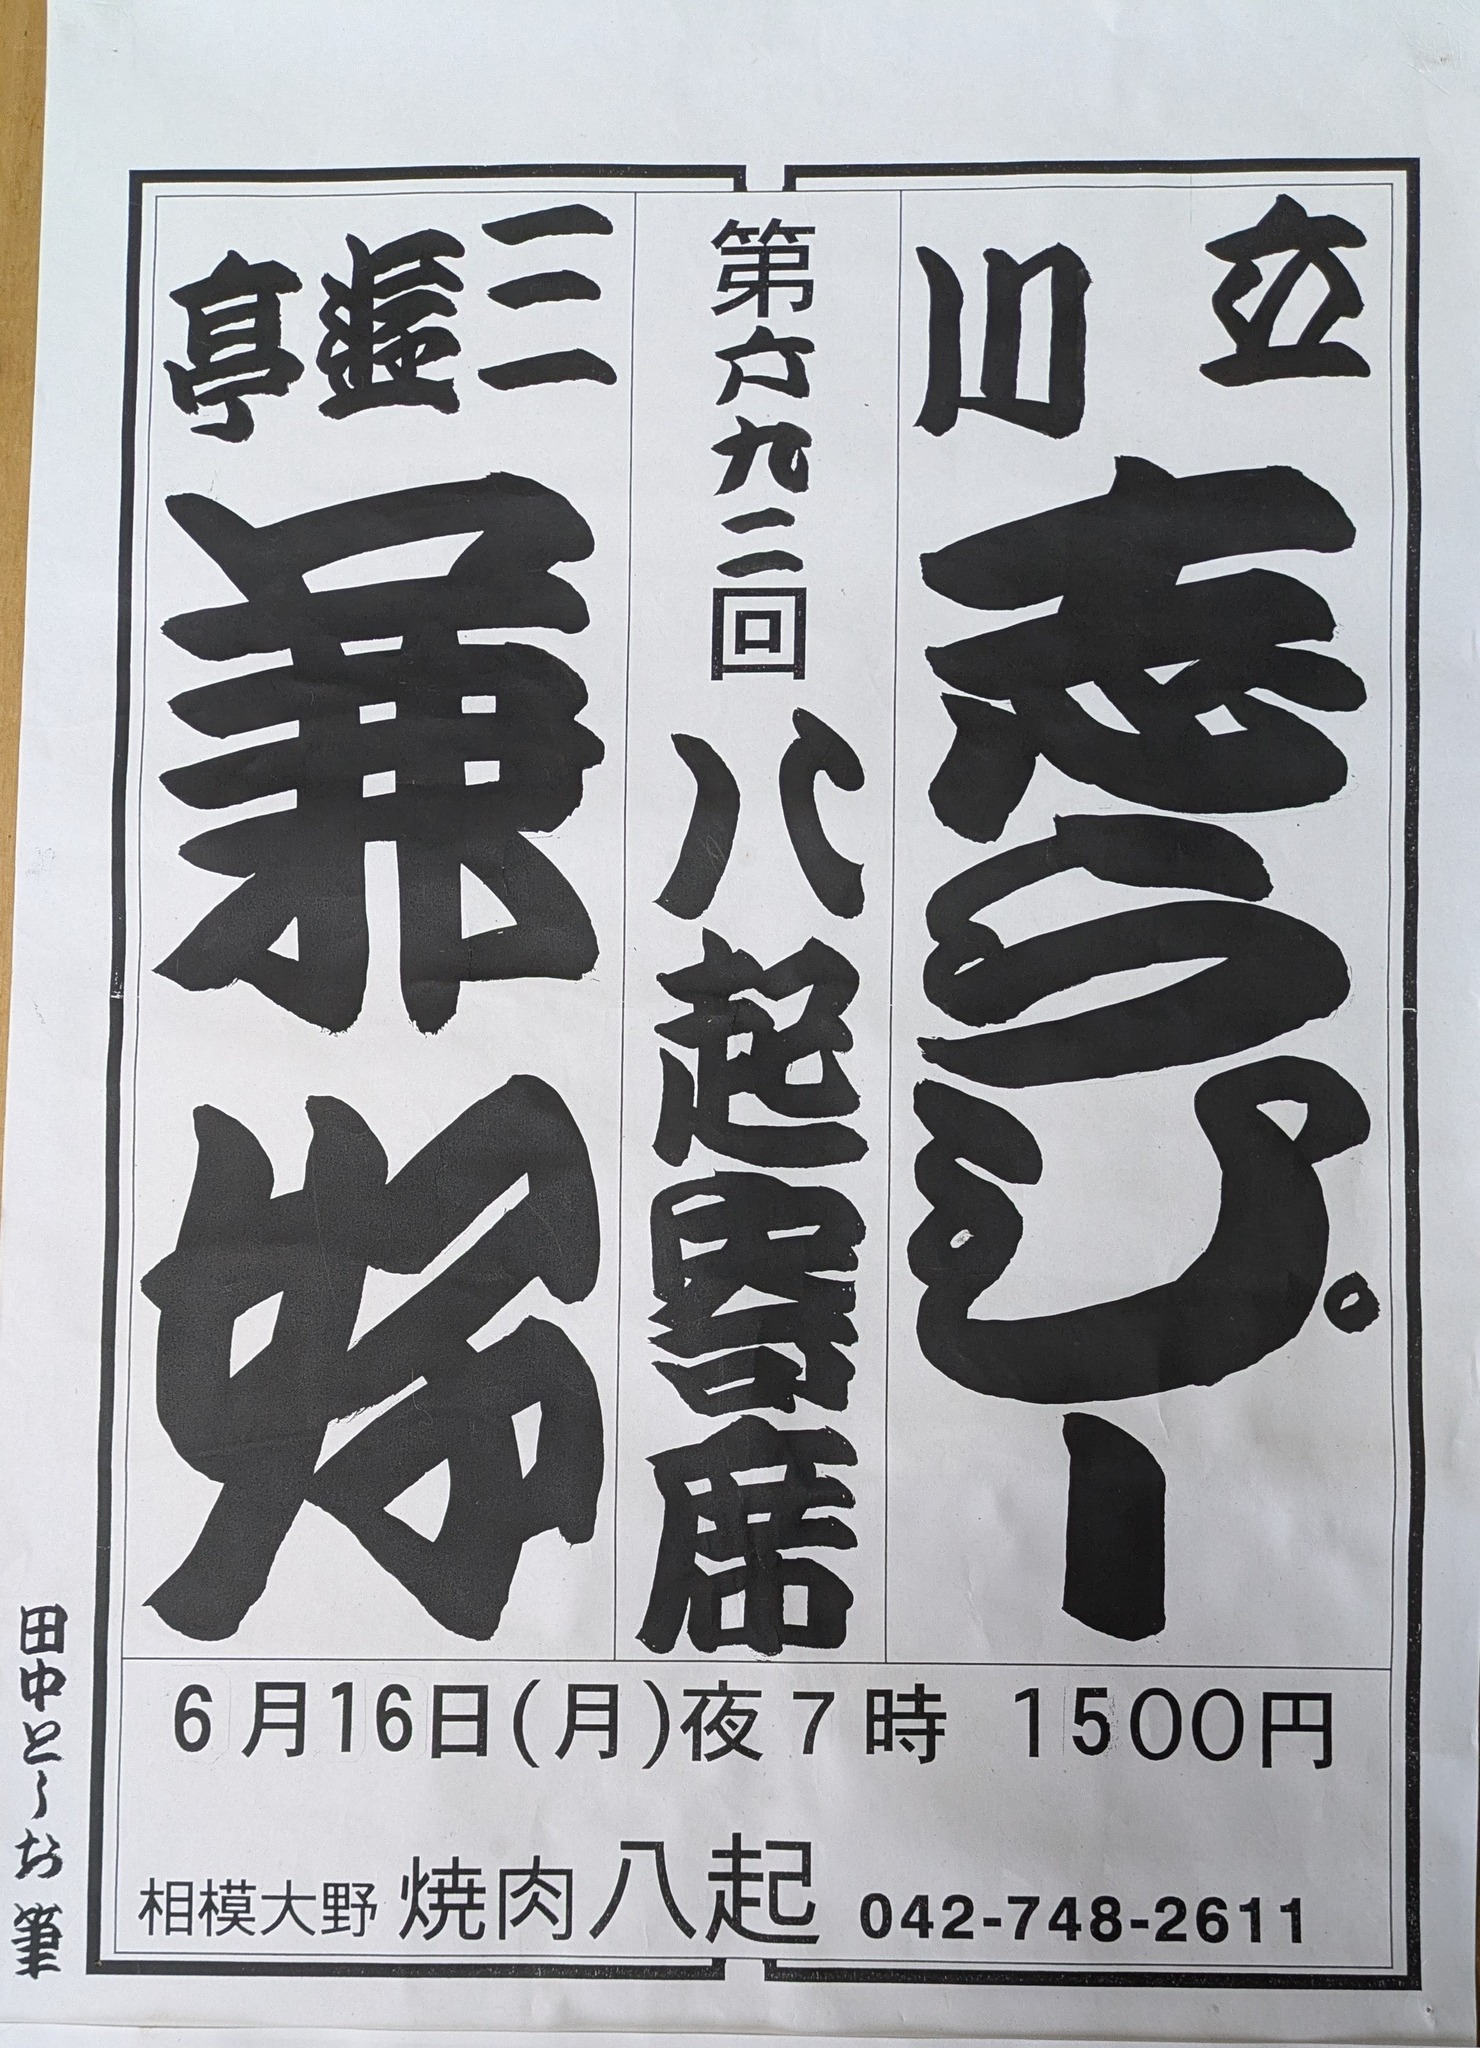 立川 志らぴー
第六九二回 八起寄席
三遊亭 兼始
6月16日(月)夜7時 1500円
相模大野 焼肉八起 042-748-2611
田中とーお 筆